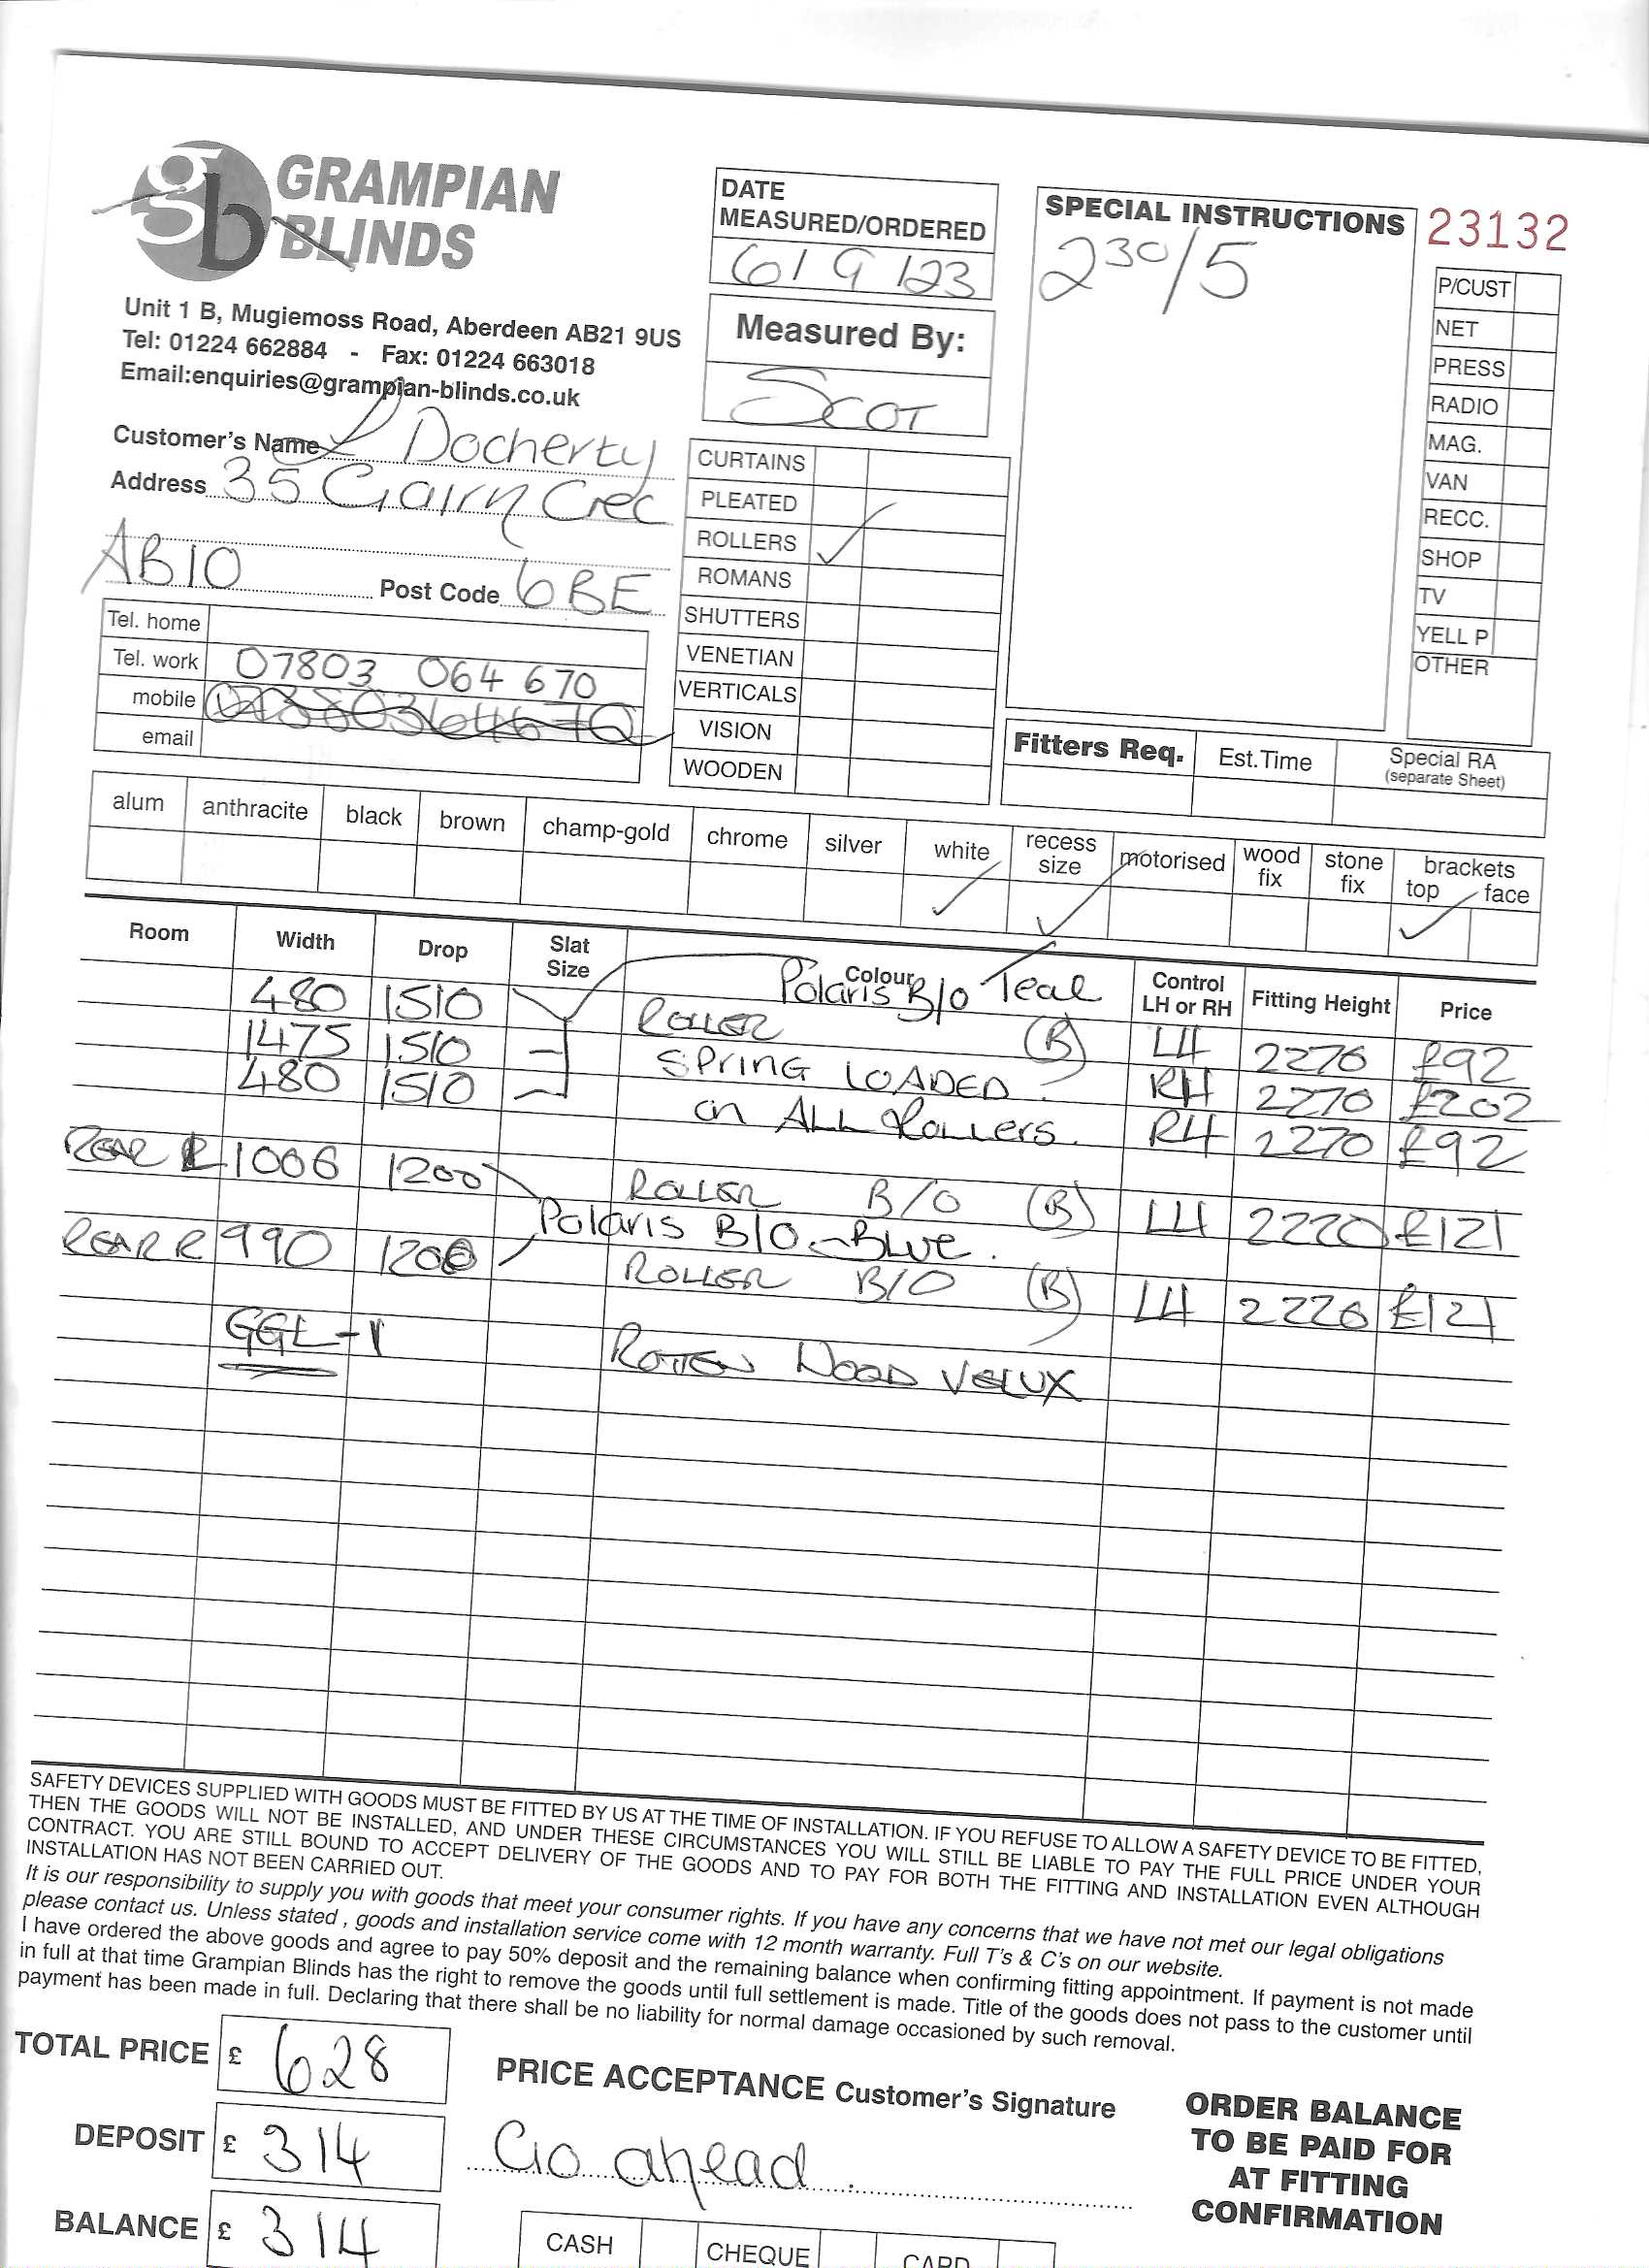 gb GRAMPIAN BLINDS
Unit 1 B, Mugiemoss Road, Aberdeen AB21 9US
Tel: 01224 662884 - Fax: 01224 663018
Email:enquiries@grampian-blinds.co.uk
Customer's Name Docherty
Address 35 Cairn Cres
AB10 Post Code 6BE
Tel. home
Tel. work 07803 064 670
mobile
email
DATE
MEASURED/ORDERED
6/9/23
Measured By:
SCOT
CURTAINS
PLEATED
ROLLERS ✓
ROMANS
SHUTTERS
VENETIAN
VERTICALS
VISION
WOODEN
SPECIAL INSTRUCTIONS
230/5
23132
P/CUST
NET
PRESS
RADIO
MAG.
VAN
RECC.
SHOP
TV
YELL P
OTHER
Fitters Req. Est.Time Special RA
(separate Sheet)
alum anthracite black brown champ-gold chrome silver white ✓ recess size ✓ motorised wood fix stone fix brackets top ✓ face
Room Width Drop Slat Size Colour Control LH or RH Fitting Height Price
Polaris B/O Teal
480 1510 ROLLER (B) LH 2270 £92
1475 1510 SPRING LOADED RH 2270 £202
480 1510 on ALL Rollers. RH 2270 £92
REAR L 1006 1200 ROLLER B/O (B) LH 2220 £121
Polaris B/O - Blue.
REAR R 990 1200 ROLLER B/O (B) LH 2220 £121
ROTTEN WOOD VELUX
SAFETY DEVICES SUPPLIED WITH GOODS MUST BE FITTED BY US AT THE TIME OF INSTALLATION. IF YOU REFUSE TO ALLOW A SAFETY DEVICE TO BE FITTED,
THEN THE GOODS WILL NOT BE INSTALLED, AND UNDER THESE CIRCUMSTANCES YOU WILL STILL BE LIABLE TO PAY THE FULL PRICE UNDER YOUR
CONTRACT. YOU ARE STILL BOUND TO ACCEPT DELIVERY OF THE GOODS AND TO PAY FOR BOTH THE FITTING AND INSTALLATION EVEN ALTHOUGH
INSTALLATION HAS NOT BEEN CARRIED OUT.
It is our responsibility to supply you with goods that meet your consumer rights. If you have any concerns that we have not met our legal obligations
please contact us. Unless stated , goods and installation service come with 12 month warranty. Full T's & C's on our website.
I have ordered the above goods and agree to pay 50% deposit and the remaining balance when confirming fitting appointment. If payment is not made
in full at that time Grampian Blinds has the right to remove the goods until full settlement is made. Title of the goods does not pass to the customer until
payment has been made in full. Declaring that there shall be no liability for normal damage occasioned by such removal.
TOTAL PRICE £ 628
DEPOSIT £ 314
BALANCE £ 314
PRICE ACCEPTANCE Customer's Signature
Go ahead.
ORDER BALANCE
TO BE PAID FOR
AT FITTING
CONFIRMATION
CASH CHEQUE CARD